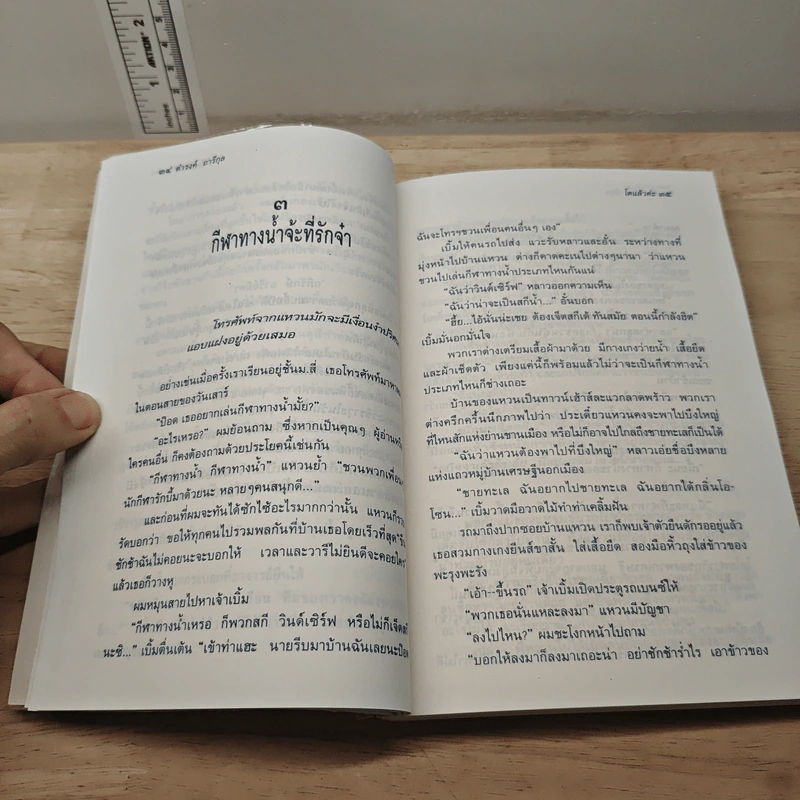 ๒๔ ดำรงค์ อารีกุล
๓
กีฬาทางน้ำจ้ะที่รักจ๋า
โทรศัพท์จากแหวนมักจะมีเงื่อนงำปริศ
แอบแฝงอยู่ด้วยเสมอ
อย่างเช่นเมื่อครั้งเราเรียนอยู่ชั้นม.สี่ เธอโทรศัพท์มาหา
ในตอนสายของวันเสาร์
“ป๊อด เธออยากเล่นกีฬาทางน้ำมั้ย?”
“อะไรเหรอ?” ผมย้อนถาม ซึ่งหากเป็นคุณๆ ผู้อ่าน
ใครคนอื่น ก็คงต้องถามด้วยประโยคนี้เช่นกัน
“กีฬาทางน้ำ กีฬาทางน้ำ” แหวนย้ำ “ชวนพวกเพื่อน
นักกีฬารักบี้มาด้วยนะ หลายๆคนสนุกดี...”
และก่อนที่ผมจะทันได้ซักไซ้อะไรมากกว่านั้น แหวนก็
รัดบอกว่า ขอให้ทุกคนไปรวมพลกันที่บ้านเธอโดยเร็วที่สุด
ชักช้าฉันไม่คอยนะจะบอกให้ เวลาและวารีไม่ยินดีจะคอยใคร
แล้วเธอก็วางหู
ผมหมุนสายไปหาเจ้าเบิ้ม
“กีฬาทางน้ำเหรอ ก็พวกสกี วินด์เซิร์ฟ หรือไม่ก็เจ็ตส
นะซิ...” เบิ้มตื่นเต้น “เข้าท่าแฮะ นายรีบมาบ้านฉันเลยนะป๊อด
โตแล้วค่ะ ๒๕
ฉันจะโทรฯชวนเพื่อนคนอื่นๆ เอง”
เบิ้มให้คนรถไปส่ง แวะรับหลาวและอั้น ระหว่างทางที่
มุ่งหน้าไปบ้านแหวน ต่างก็คาดคะเนไปต่างๆนานา ว่าแหวน
ชวนไปเล่นกีฬาทางน้ำประเภทไหนกันแน่
“ฉันว่าวินด์เซิร์ฟ” หลาวออกความเห็น
“ฉันว่าน่าจะเป็นสกีน้ำ...” อั้นบอก
“ฮี้ย...ไอ้นั่นน่ะเชย ต้องเจ็ตสกีเด้ ทันสมัย ตอนนี้กำลังฮิต”
เบิ้มมั่นอกมั่นใจ
พวกเราต่างเตรียมเสื้อผ้ามาด้วย มีกางเกงว่ายน้ำ เสื้อยืด
และผ้าเช็ดตัว เพียงแค่นี้ก็พร้อมแล้วไม่ว่าจะเป็นกีฬาทางน้ำ
ประเภทไหนก็ช่างเถอะ
บ้านของแหวนเป็นทาวน์เฮ้าส์ละแวกลาดพร้าว พวกเรา
ต่างครึกครื้นนึกภาพไปว่า ประเดี๋ยวแหวนคงจะพาไปบึงใหญ่
ที่ไหนสักแห่งย่านชานเมือง หรือไม่ก็อาจไปไกลถึงชายทะเลก็เป็นได้
“ฉันว่าแหวนต้องพาไปที่บึงใหญ่” หลาวเอ่ยชื่อบึงหลาย
แห่งแถวหมู่บ้านเศรษฐีนอกเมือง
“ชายทะเล ฉันอยากไปชายทะเล ฉันอยากได้กลิ่นโอ-
โซน...” เบิ้มวาดมือวาดไม้ทำท่าเคลิ้มฝัน
รถมาถึงปากซอยบ้านแหวน เราก็พบเจ้าตัวยืนดักรออยู่แล้ว
เธอสวมกางเกงยีนส์ขาสั้น ใส่เสื้อยืด สองมือหิ้วถุงใส่ข้าวของ
พะรุงพะรัง
“เอ้า--ขึ้นรถ” เจ้าเบิ้มเปิดประตูรถเบนซ์ให้
“พวกเธอนั่นแหละลงมา” แหวนมีบัญชา
“ลงไปไหน?” ผมชะโงกหน้าไปถาม
“บอกให้ลงมาก็ลงมาเถอะน่า อย่าชักช้าร่ำไร เอาข้าวของ
AKTION
inches
1
2